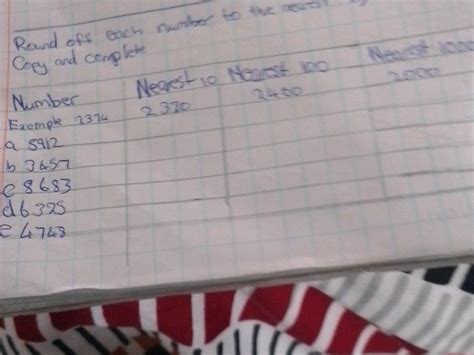 Round off each number to the
Copy and complete
Number Nearest 10 Nearest 100 Nearest 1000
Example 2374 2370 2400 2000
a 5912
b 3657
c 8683
d 6325
e 4748